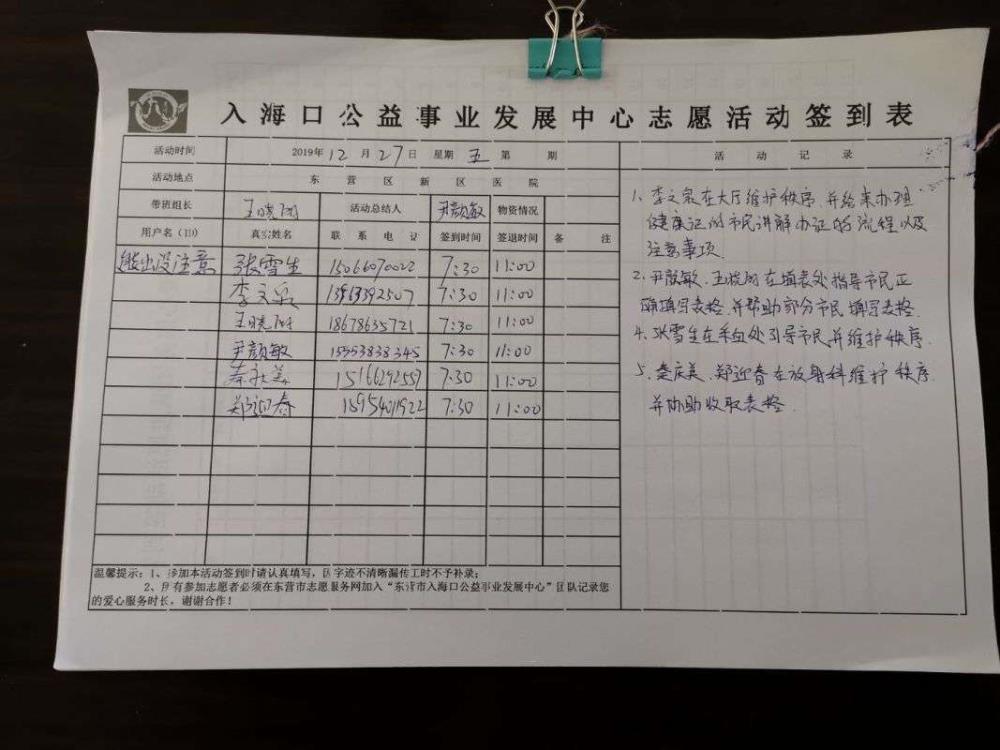 入海口公益事业发展中心志愿活动签到表
活动时间 2019年12月27日 星期五 第 期 活动记录
活动地点 东营区新区医院
带班组长 王晓阳 活动总结人 尹颜敏 物资情况
用户名(ID) 真实姓名 联系电话 签到时间 签退时间 备注
张雪生 15066070022 7:30 11:00
李文泉 7:30 11:00
王晓阳 18678635721 7:30 11:00
尹颜敏 15353838345 7:30 11:00
7:30 11:00
郑迎春 15954011922 7:30 11:00
1、李文泉在大厅维护秩序,并给来办理
健康证的市民讲解办证的流程以及
注意事项.
2、尹颜敏、王晓阳在填表处指导市民正
确填写表格,并帮助部分市民填写表格.
4、张雪生在采血处引导市民,并维护秩序.
5、娄庆美、郑迎春在放射科维护秩序.
并协助收取表格.
温馨提示:1、参加本活动签到时请认真填写,因字迹不清晰漏传工时不予补录;
2、所有参加志愿者必须在东营市志愿服务网加入“东营市入海口公益事业发展中心”团队记录您
的爱心服务时长,谢谢合作!